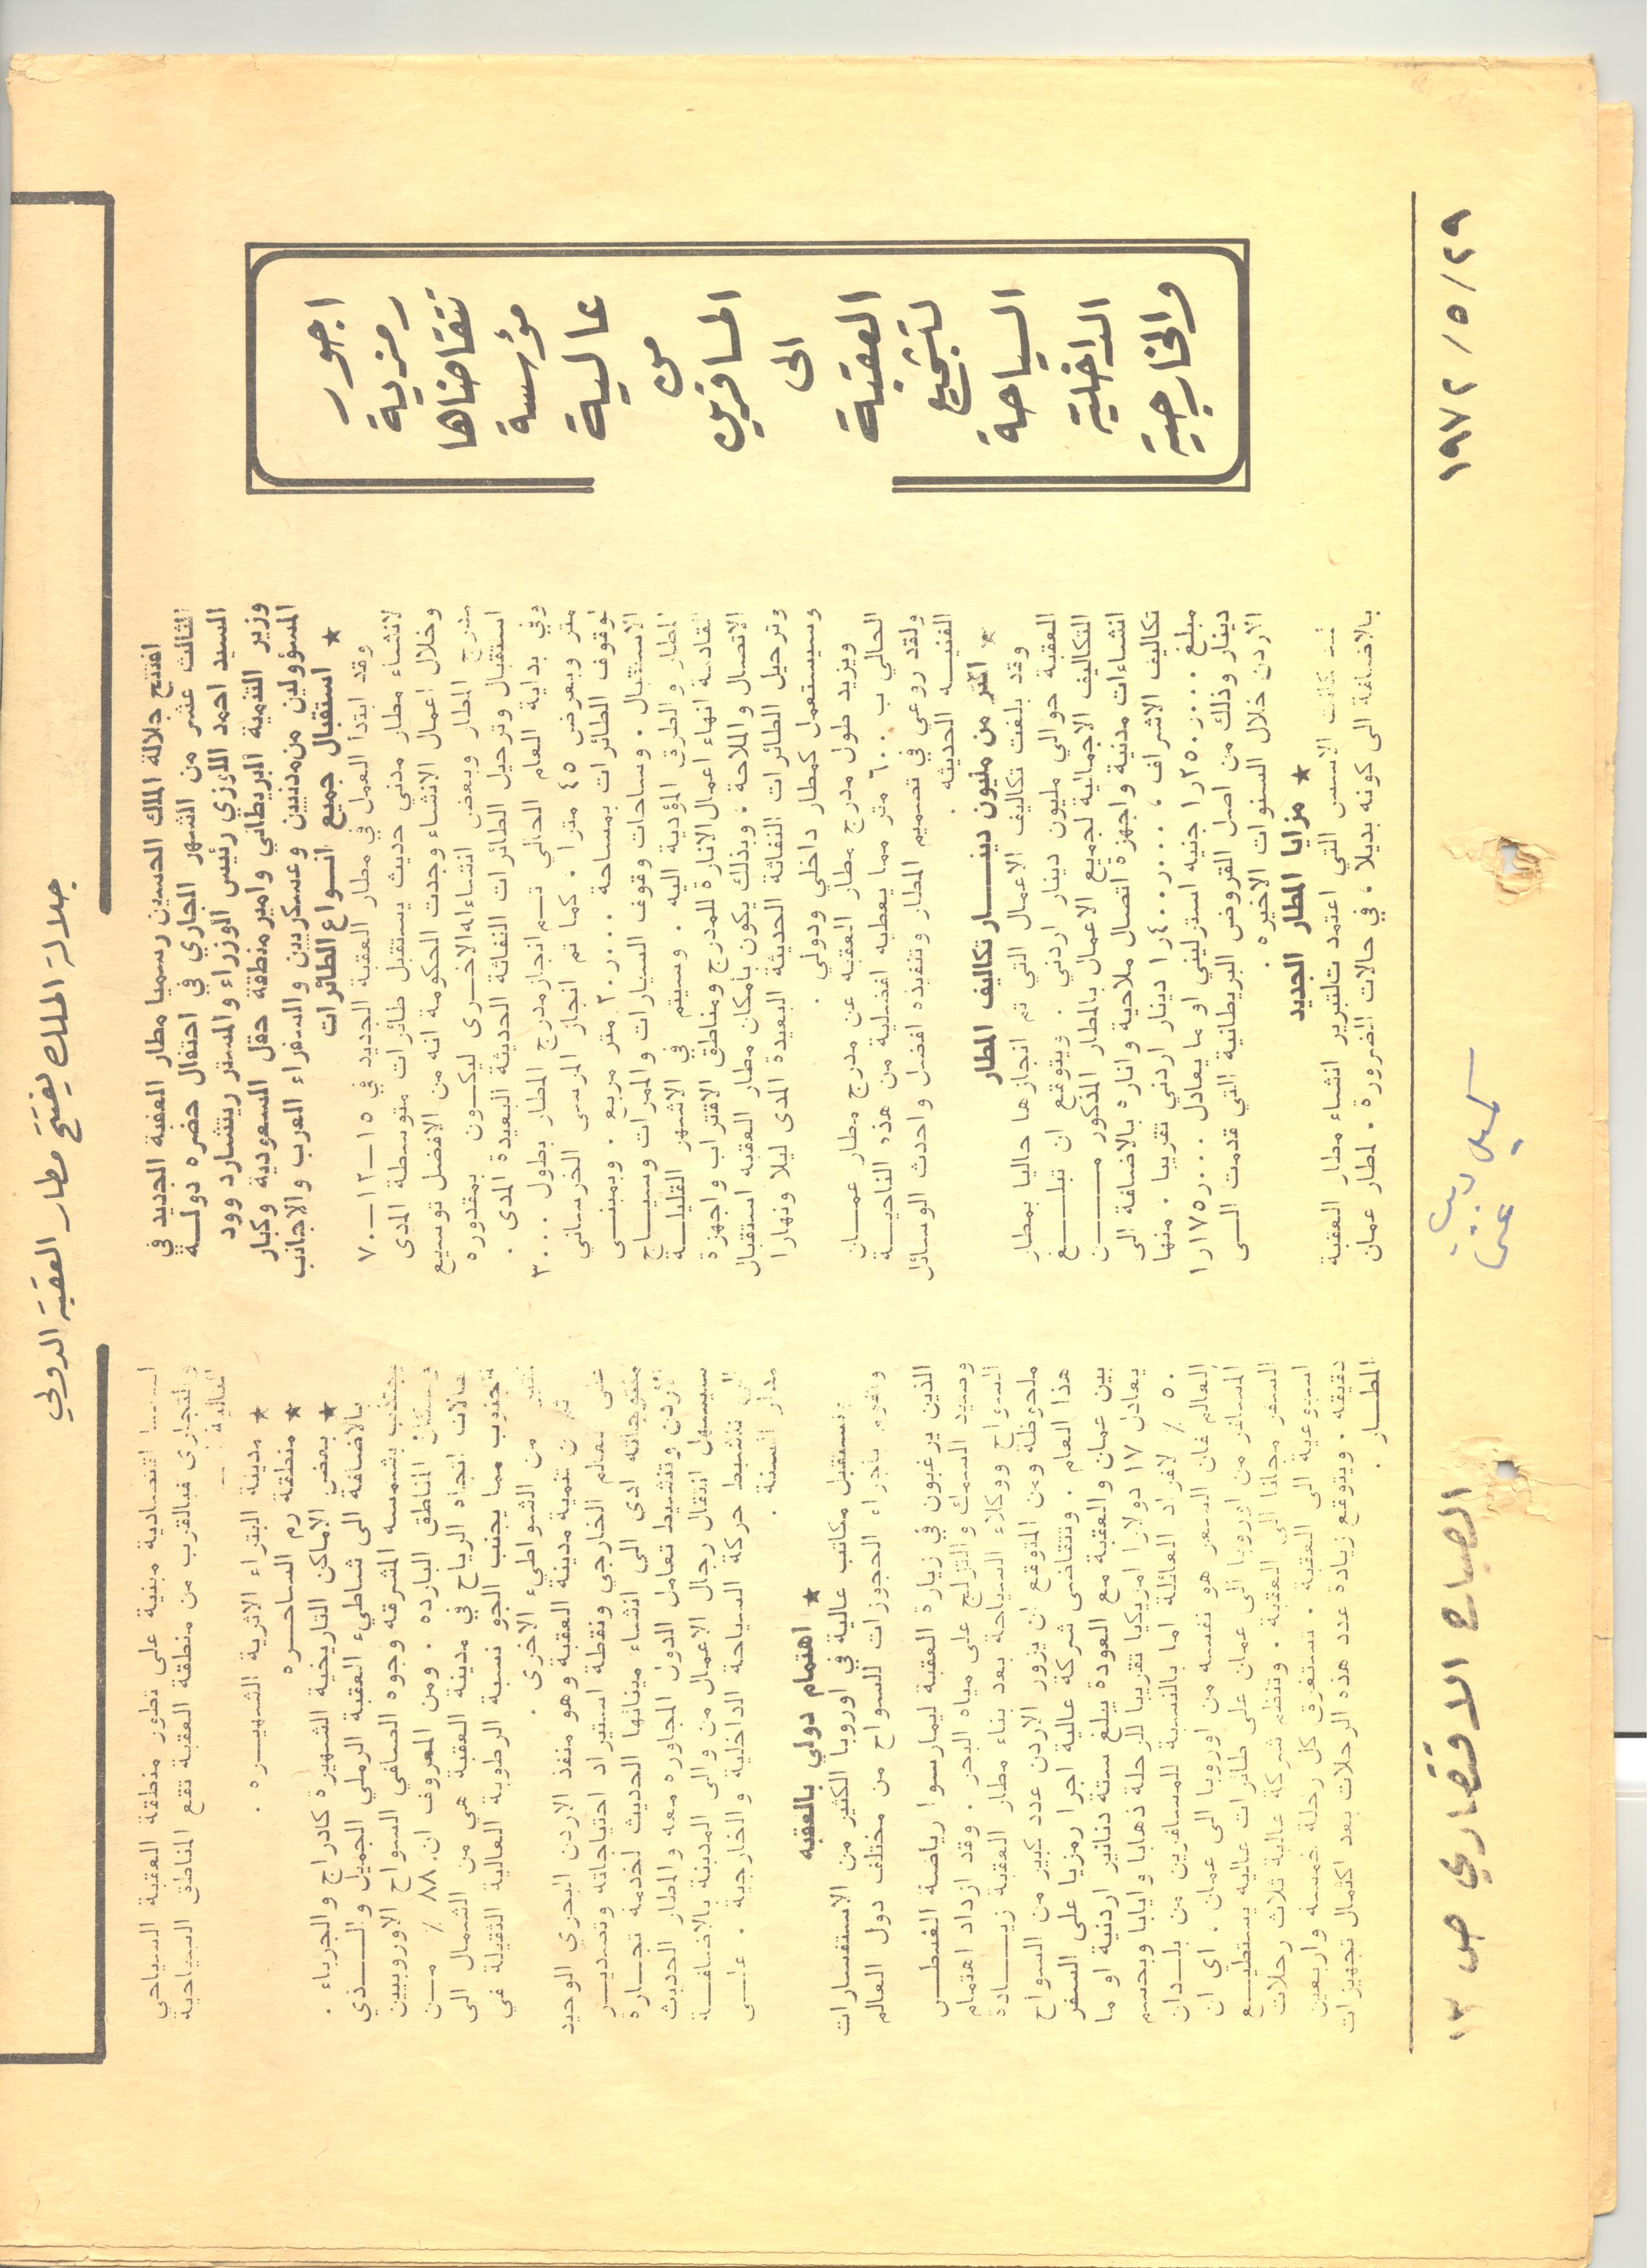 جلالة الملك يفتتح مطار العقبة الدولي
اجور
رمزية
تتقاضاها
مؤسسة
عالية
من
المسافرين
الى
العقبة
لتشجيع
السياحة
الداخلية
والخارجية
افتتح جلالة الملك الحسين رسميا مطار العقبة الجديد في
الثالث عشر من الشهر الجاري في احتفال حضره دولة
السيد احمد اللوزي رئيس الوزراء والمستر ريتشارد وود
وزير التنمية البريطاني وامير منطقة حقل السعودية وكبار
المسؤولين من مدنيين وعسكريين والسفراء العرب والاجانب
★ استقبال جميع انواع الطائرات
وقد ابتدأ العمل في مطار العقبة الجديد في ١٥-١٢-٧٠
لانشاء مطار مدني حديث يستقبل طائرات متوسطة المدى
وخلال اعمال الانشاء وجدت الحكومة انه من الافضل توسيع
مدرج المطار وبعض انشاءاته الاخرى ليكون بمقدوره
استقبال وترحيل الطائرات النفاثة الحديثة البعيدة المدى .
وفي بداية العام الحالي تم انجاز مدرج المطار بطول ٣٠٠٠
متر وبعرض ٤٥ مترا . كما تم انجاز المرسى الخرساني
لوقوف الطائرات بمساحة ٢٠ر٠٠٠ متر مربع . وبمبنى
الاستقبال . وساحات وقوف السيارات والممرات وسياج
المطار والطرق المؤدية اليه . وسيتم في الاشهر القليلة
القادمة انهاء اعمال الانارة للمدرج ومناطق الاقتراب واجهزة
الاتصال والملاحة ، وبذلك يكون بأمكان مطار العقبه استقبال
وترحيل الطائرات النفاثة الحديثة البعيدة المدى ليلا ونهارا
وسيستعمل كمطار داخلي ودولي .
ويزيد طول مدرج مطار العقبه عن مدرج مطار عمان
الحالي ب ٦٠٠ متر مما يعطيه افضلية من هذه الناحية
ولقد روعي في تصميم المطار وتنفيذه افضل واحدث الوسائل
الفنيه الحديثه .
★ اكثر من مليون دينار تكاليف المطار
وقد بلغت تكاليف الاعمال التي تم انجازها حاليا بمطار
العقبة حوالي مليون دينار اردني . ويتوقع ان تبلغ
التكاليف الاجمالية لجميع الاعمال بالمطار المذكور من
انشاءات مدنية واجهزة اتصال ملاحية واناره بالاضافة الى
تكاليف الاشراف ، ١ر٤٠٠ر٠٠٠ دينار اردني تقريبا . منها
مبلغ ١ر٢٥٠ر٠٠٠ جنيه استرليني او ما يعادل ١ر١٧٥ر٠٠٠
دينار وذلك من اصل القروض البريطانية التي قدمت الى
الاردن خلال السنوات الاخيره .
★ مزايا المطار الجديد
لقد كانت الاسس التي اعتمدت لتبرير انشاء مطار العقبة
بالاضافة الى كونه بديلا ، في حالات الضرورة ، لمطار عمان
اسسا اقتصادية مبنية على تطور منطقة العقبة السياحي
والتجاري فبالقرب من منطقة العقبة تقع المناطق السياحية
التالية :
★ مدينة البتراء الاثرية الشهيره .
★ منطقة رم الساحره
★ بعض الاماكن التاريخية الشهيرة كادراج والجرباء .
بالاضافة الى شاطيء العقبة الرملي الجميل والذي
يجتذب بشمسه المشرقه وجوه الصافي السواح الاوروبيين
وسكان المناطق البارده . ومن المعروف ان ٨٨ ٪ من
حالات اتجاه الرياح في مدينة العقبة هي من الشمال الى
الجنوب مما يجنب الجو نسبة الرطوبة العالية الثقيلة في
كثير من الشواطيء الاخرى .
ثم ان تنمية مدينة العقبة وهو منفذ الاردن البحري الوحيد
على العالم الخارجي ونقطة استيراد احتياجاته وتصدير
منتوجاته ادى الى انشاء مينائها الحديث لخدمة تجارة
الاردن وتنشيط تعامل الدول المجاوره معه والمطار الحديث
سيسهل انتقال رجال الاعمال من والى المدينة بالاضافة
الى تنشيط حركة السياحة الداخلية والخارجية . على
مدار السنة .
★ اهتمام دولي بالعقبه
وتستقبل مكاتب عالية في اوروبا الكثير من الاستفسارات
وتقوم باجراء الحجوزات للسواح من مختلف دول العالم
الذين يرغبون في زيارة العقبة ليمارسوا رياضة الغطس
وصيد السمك والتزلج على مياه البحر . وقد ازداد اهتمام
السواح ووكلاء السياحة بعد بناء مطار العقبة زيادة
ملحوظة ومن المتوقع ان يزور الاردن عدد كبير من السواح
هذا العام . وتتقاضى شركة عالية اجرا رمزيا على السفر
بين عمان والعقبة مع العودة يبلغ ستة دنانير اردنية او ما
يعادل ١٧ دولارا امريكيا تقريبا للرحلة ذهابا وايابا وبحسم
٥٠ ٪ لافراد العائلة اما بالنسبة للمسافرين من بلدان
العالم فان السعر هو نفسه من اوروبا الى عمان ، اي ان
المسافر من اوروبا الى عمان على طائرات عاليه يستطيع
السفر مجانا الى العقبة . وتنظم شركة عالية ثلاث رحلات
اسبوعية الى العقبة . تستغرق كل رحلة خمسة واربعين
دقيقه . ويتوقع زيادة عدد هذه الرحلات بعد اكتمال تجهيزات
المطار .
١٩٧٢ / ٥ / ٢٩
الصباح الاقتصادي ص ١٣